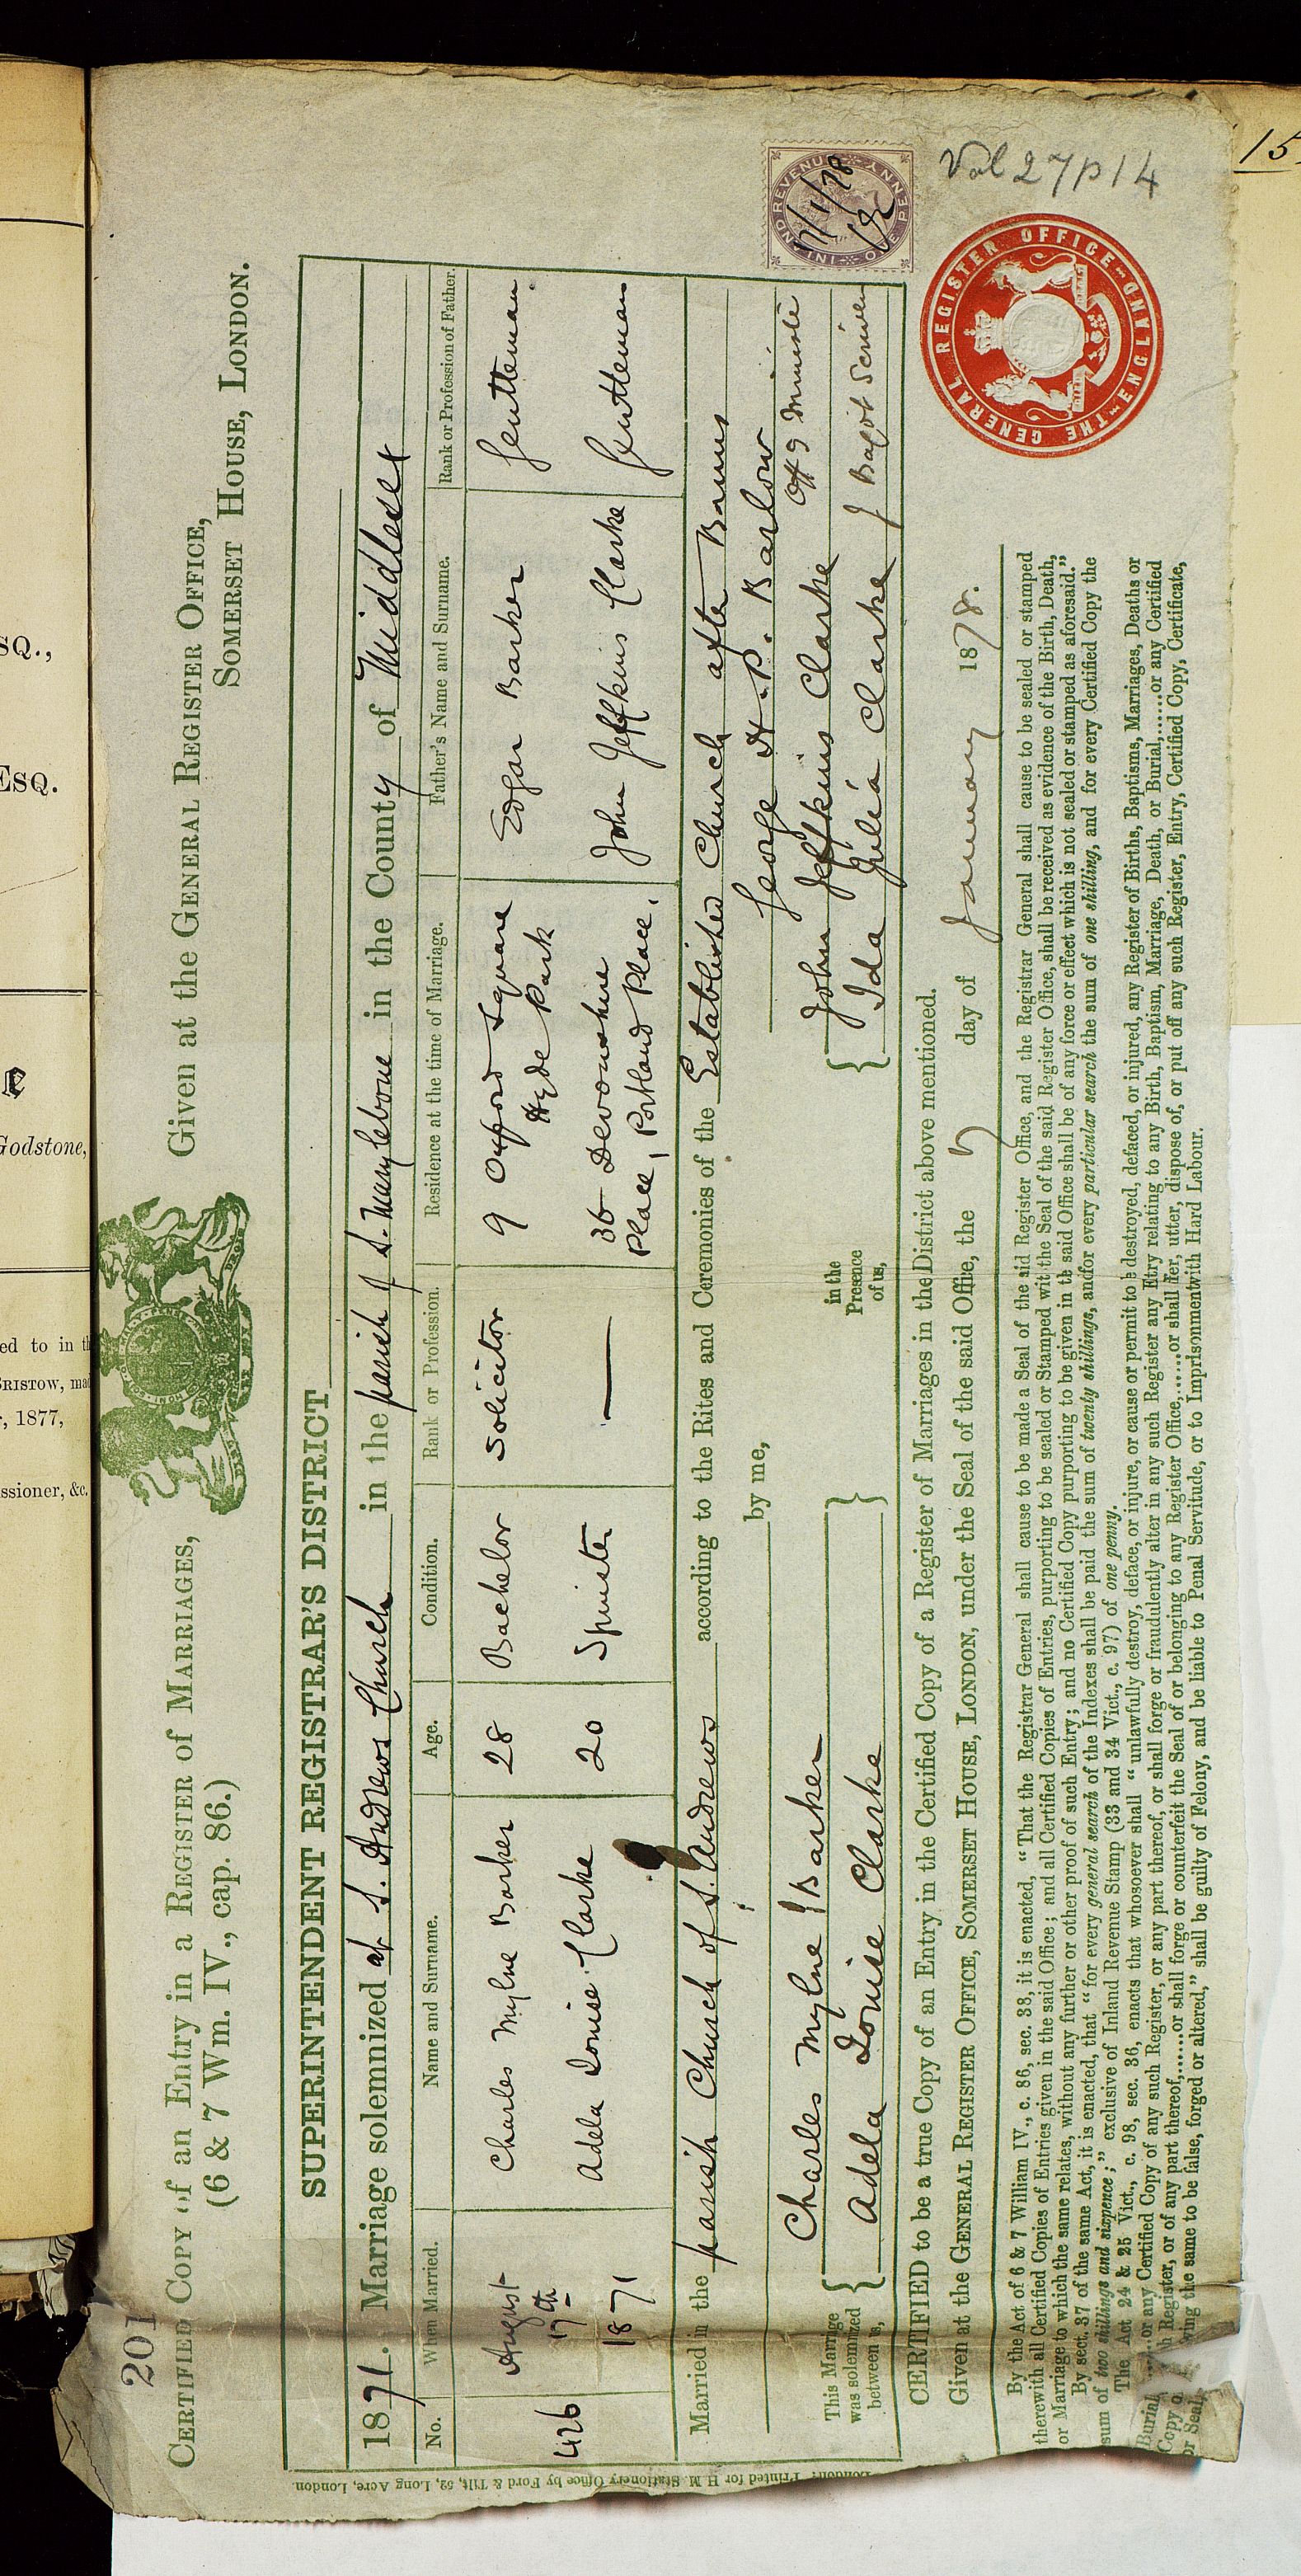 201
CERTIFIED COPY of an Entry in a REGISTER OF MARRIAGES,
(6 & 7 Wm. IV., cap. 86.)
Given at the GENERAL REGISTER OFFICE,
SOMERSET HOUSE, LONDON.
SUPERINTENDENT REGISTRAR'S DISTRICT
1871. Marriage solemnized at S. Andrews Church in the parish of S. Marylebone in the County of Middlesex
No. When Married. Name and Surname. Age. Condition. Rank or Profession. Residence at the time of Marriage. Father's Name and Surname. Rank or Profession of Father.
426 August 17th 1871 Charles Mylne Barker 28 Bachelor Solicitor 9 Oxford Square Hyde Park Edgar Barker Gentleman
Adela Louise Clarke 20 Spinster — 36 Devonshire Place, Portland Place, John Jeffkins Clarke Gentleman
Married in the parish Church of S. Andrews according to the Rites and Ceremonies of the Established Church after Banns
by me, George H. P. Barlow
Offg Ministr
This Marriage was solemnized between us, { Charles Mylne Barker } in the Presence of us, { John Jeffkins Clarke
Adela Louise Clarke Ida Julia Clarke J Bagot Scriven
CERTIFIED to be a true Copy of an Entry in the Certified Copy of a Register of Marriages in the District above mentioned.
Given at the GENERAL REGISTER OFFICE, SOMERSET HOUSE, LONDON, under the Seal of the said Office, the 7 day of January 1878.
By the Act of 6 & 7 William IV., c. 86, sec. 38, it is enacted, "That the Registrar General shall cause to be made a Seal of the aid Register Office, and the Registrar General shall cause to be sealed or stamped
therewith all Certified Copies of Entries given in the said Office; and all Certified Copies of Entries, purporting to be sealed or Stamped wit the Seal of the said Register Office, shall be received as evidence of the Birth, Death,
or Marriage to which the same relates, without any further or other proof of such Entry; and no Certified Copy purporting to be given in th said Office shall be of any force or effect which is not sealed or stamped as aforesaid."
By sect. 37 of the same Act, it is enacted, that "for every general search of the Indexes shall be paid the sum of twenty shillings, and for every particular search the sum of one shilling, and for every Certified Copy the
sum of two shillings and sixpence;" exclusive of Inland Revenue Stamp (33 and 34 Vict., c. 97) of one penny.
The Act 24 & 25 Vict., c. 98, sec. 36, enacts that whosoever shall "unlawfully destroy, deface, or injure, or cause or permit to be destroyed, defaced, or injured, any Register of Births, Baptisms, Marriages, Deaths or
Burial ......or any Certified Copy of any such Register, or any part thereof, or shall forge or fraudulently alter in any such Register any Etry relating to any Birth, Baptism, Marriage, Death, or Burial,......or any Certified
Copy o h Register, or of any part thereof,......or shall forge or counterfeit the Seal of or belonging to any Register Office,......or shall ffer, utter, dispose of, or put off any such Register, Entry, Certified Copy, Certificate,
or Seal, wing the same to be false, forged or altered," shall be guilty of Felony, and be liable to Penal Servitude, or to Imprisonment with Hard Labour.
London: Printed for H M Stationery Office by Ford & Tilt, 52, Long Acre, London.
INLAND REVENUE ONE PENNY
7/1/78
THE GENERAL REGISTER OFFICE ENGLAND
Vol 27 p 14
15
SQ.,
ESQ.
Godstone,
ed to in th
BRISTOW, mad
, 1877,
issioner, &c.